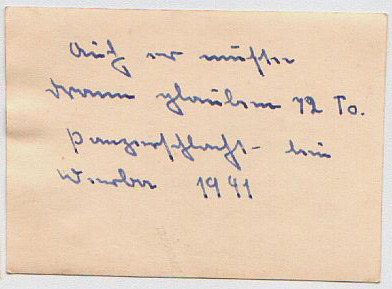 Auch er mußte
dran glauben 72 To.
Panzerschlacht - bei
Werba 1941